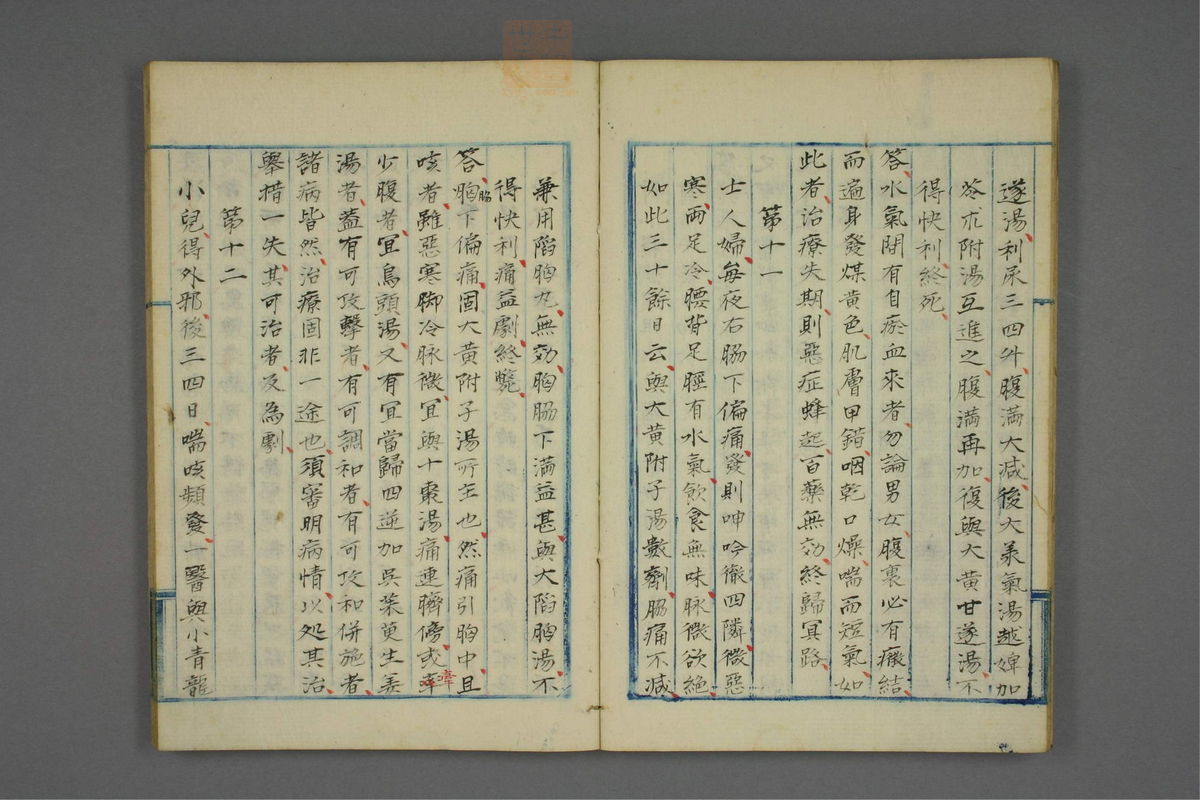 遂湯利尿三四外腹滿大减後大羕氣湯越婢加
苓朮附湯互進之腹満再加復與大黄甘遂湯不
得快利終死
答水氣閒有自瘀血來者勿論男女腹裏必有癥結
而遍身發煤黄色肌膚甲錯咽乾口燥喘而短氣如
此者治療失期則惡症蜂起百藥無効終歸冥路
第十一
士人婦每夜右脇下偏痛發則呻吟徹四隣微惡
寒両足冷腰背足踁有水氣飲食無味脉微欲絶
如此三十餘日云與大黄附子湯數劑脇痛不减
兼用陷胸丸無効胸脇下満益甚與大陷胸湯不
得快利痛益劇終斃
答胸脇下偏痛固大黄附子湯所主也然痛引胸中且
咳者雖惡寒脚冷脉微冝與十棗湯痛連臍傍或牽
少腹者冝烏頭湯又有冝當歸四逆加呉茱萸生姜
湯者蓋有可攻擊者有可調和者有可攻和併施者
諸病皆然治療固非一途也須審明病情以処其治
舉措一失其可治者反為劇
第十二
小兒得外邪後三四日喘咳頻發一醫與小青龍